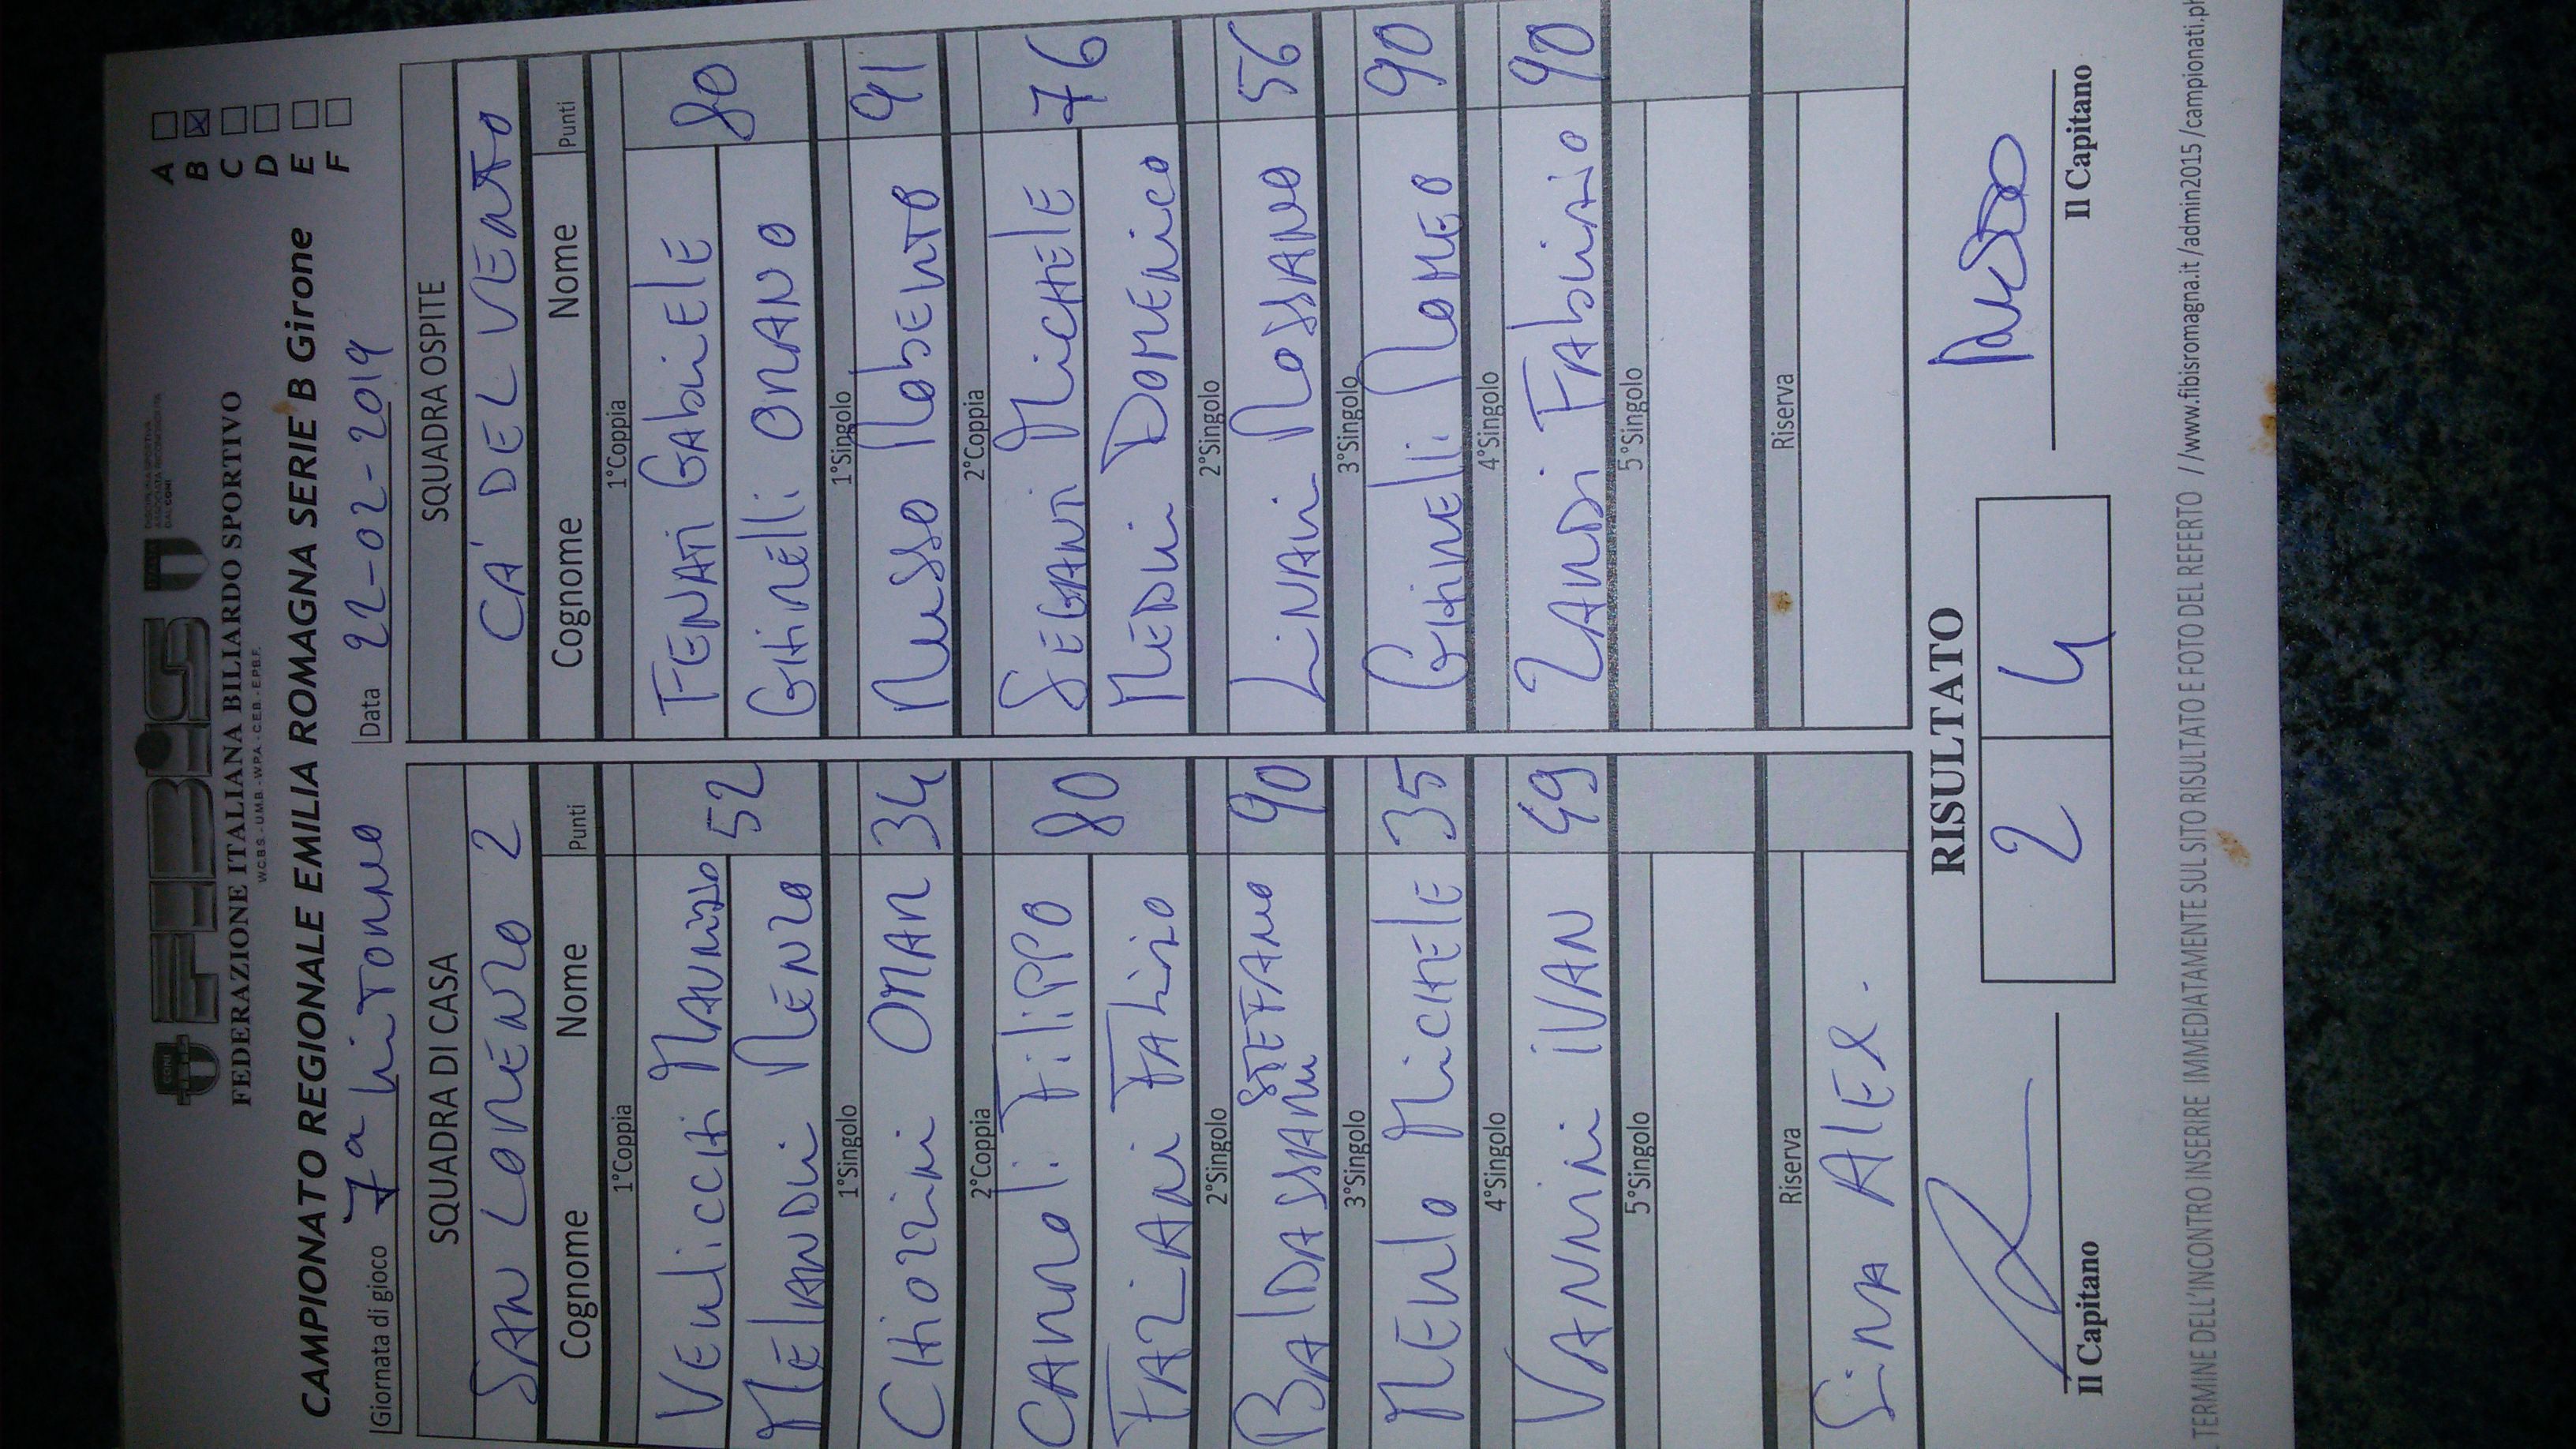 FEDERAZIONE ITALIANA BILIARDO SPORTIVO
W.C.B.S. - U.M.B. - W.P.A. - C.E.B. - E.P.B.F.
CAMPIONATO REGIONALE EMILIA ROMAGNA SERIE B Girone
A
B
C
D
E
F
Giornata di gioco 7a RITORNO
Data 22-02-2019
SQUADRA DI CASA
SAN LORENZO 2
Cognome Nome Punti
1°Coppia
VERLICCHI MAURIZIO
MELANDRI RENZO 52
1°Singolo
CHIOZZINI OMAR 34
2°Coppia
CARROLI FILIPPO 80
FAZIANI FABRIZIO
2°Singolo
BALDASSARRI STEFANO 90
3°Singolo
MERLO MICHELE 35
4°Singolo
VANNINI IVAN 49
5°Singolo
Riserva
SIRRA ALEX.
SQUADRA OSPITE
CA' DEL VENTO
Cognome Nome Punti
1°Coppia
FENATI GABRIELE 80
GHINELLI ORANO
1°Singolo
RUSSO ROBERTO 91
2°Coppia
SEGANTI MICHELE 76
MEDRI DOMENICO
2°Singolo
LINARI ROSSANO 56
3°Singolo
GHINELLI ROMEO 90
4°Singolo
ZANDI FABRIZIO 90
5°Singolo
Riserva
RISULTATO
2 4
Il Capitano
Il Capitano
TERMINE DELL'INCONTRO INSERIRE IMMEDIATAMENTE SUL SITO RISULTATO E FOTO DEL REFERTO //www.fibisromagna.it/admin2015/campionati.ph